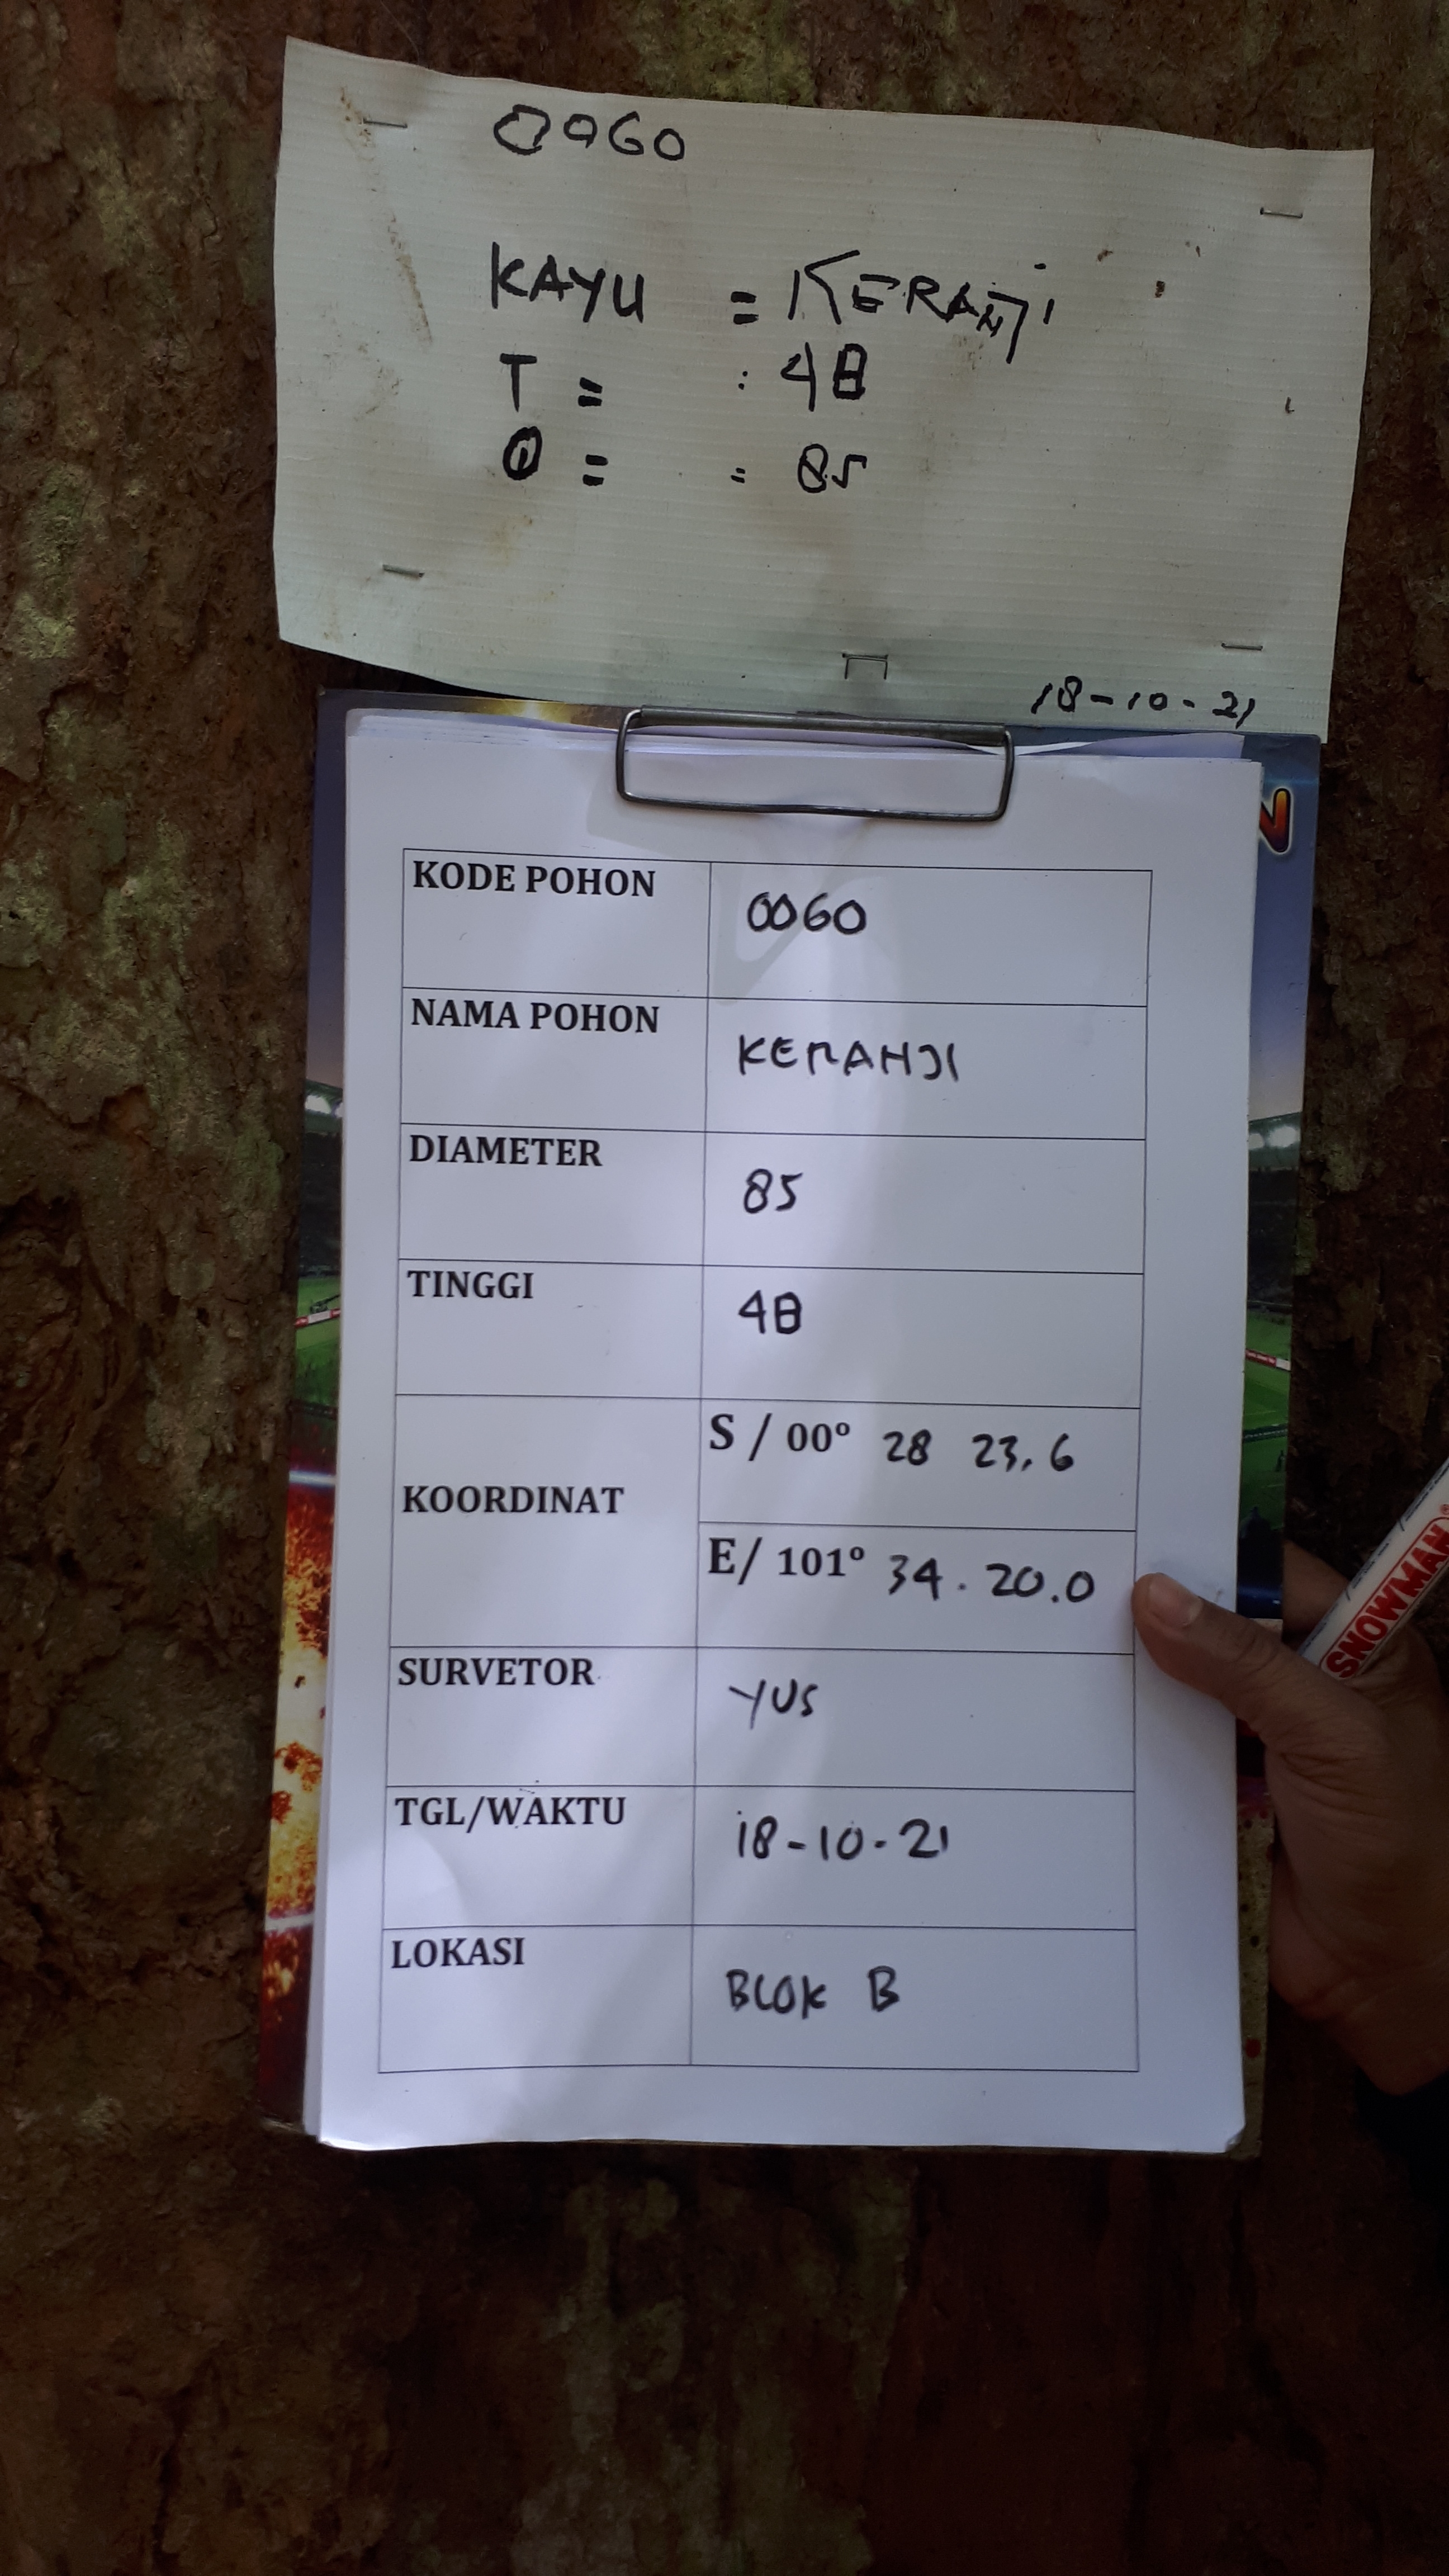 0060
KAYU = KERANJI
T = : 48
Ø = = 85
18-10-21
KODE POHON 0060
NAMA POHON KERANJI
DIAMETER 85
TINGGI 48
KOORDINAT S / 00° 28 23,6
E/ 101° 34. 20.0
SURVETOR YUS
TGL/WAKTU 18-10-21
LOKASI BLOK B
SNOWMAN